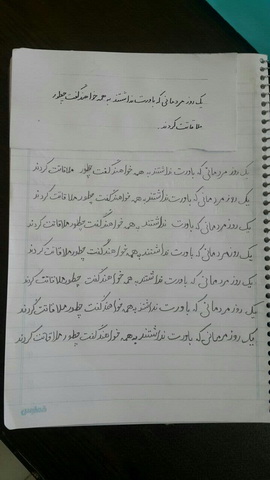 یک روز مردمانی که باورت نداشتند به همه خواهند گفت چطور
ملاقاتت کردند.
یک روز مردمانی که باورت نداشتند به همه خواهند گفت چطور ملاقاتت کردند
یک روز مردمانی که باورت نداشتند به همه خواهند گفت چطور ملاقاتت کردند
یک روز مردمانی که باورت نداشتند به همه خواهند گفت چطور ملاقاتت کردند
یک روز مردمانی که باورت نداشتند به همه خواهند گفت چطور ملاقاتت کردند
یک روز مردمانی که باورت نداشتند به همه خواهند گفت چطور ملاقاتت کردند
یک روز مردمانی که باورت نداشتند به همه خواهند گفت چطور ملاقاتت کردند
یک روز مردمانی که باورت نداشتند به همه خواهند گفت چطور ملاقاتت کردند